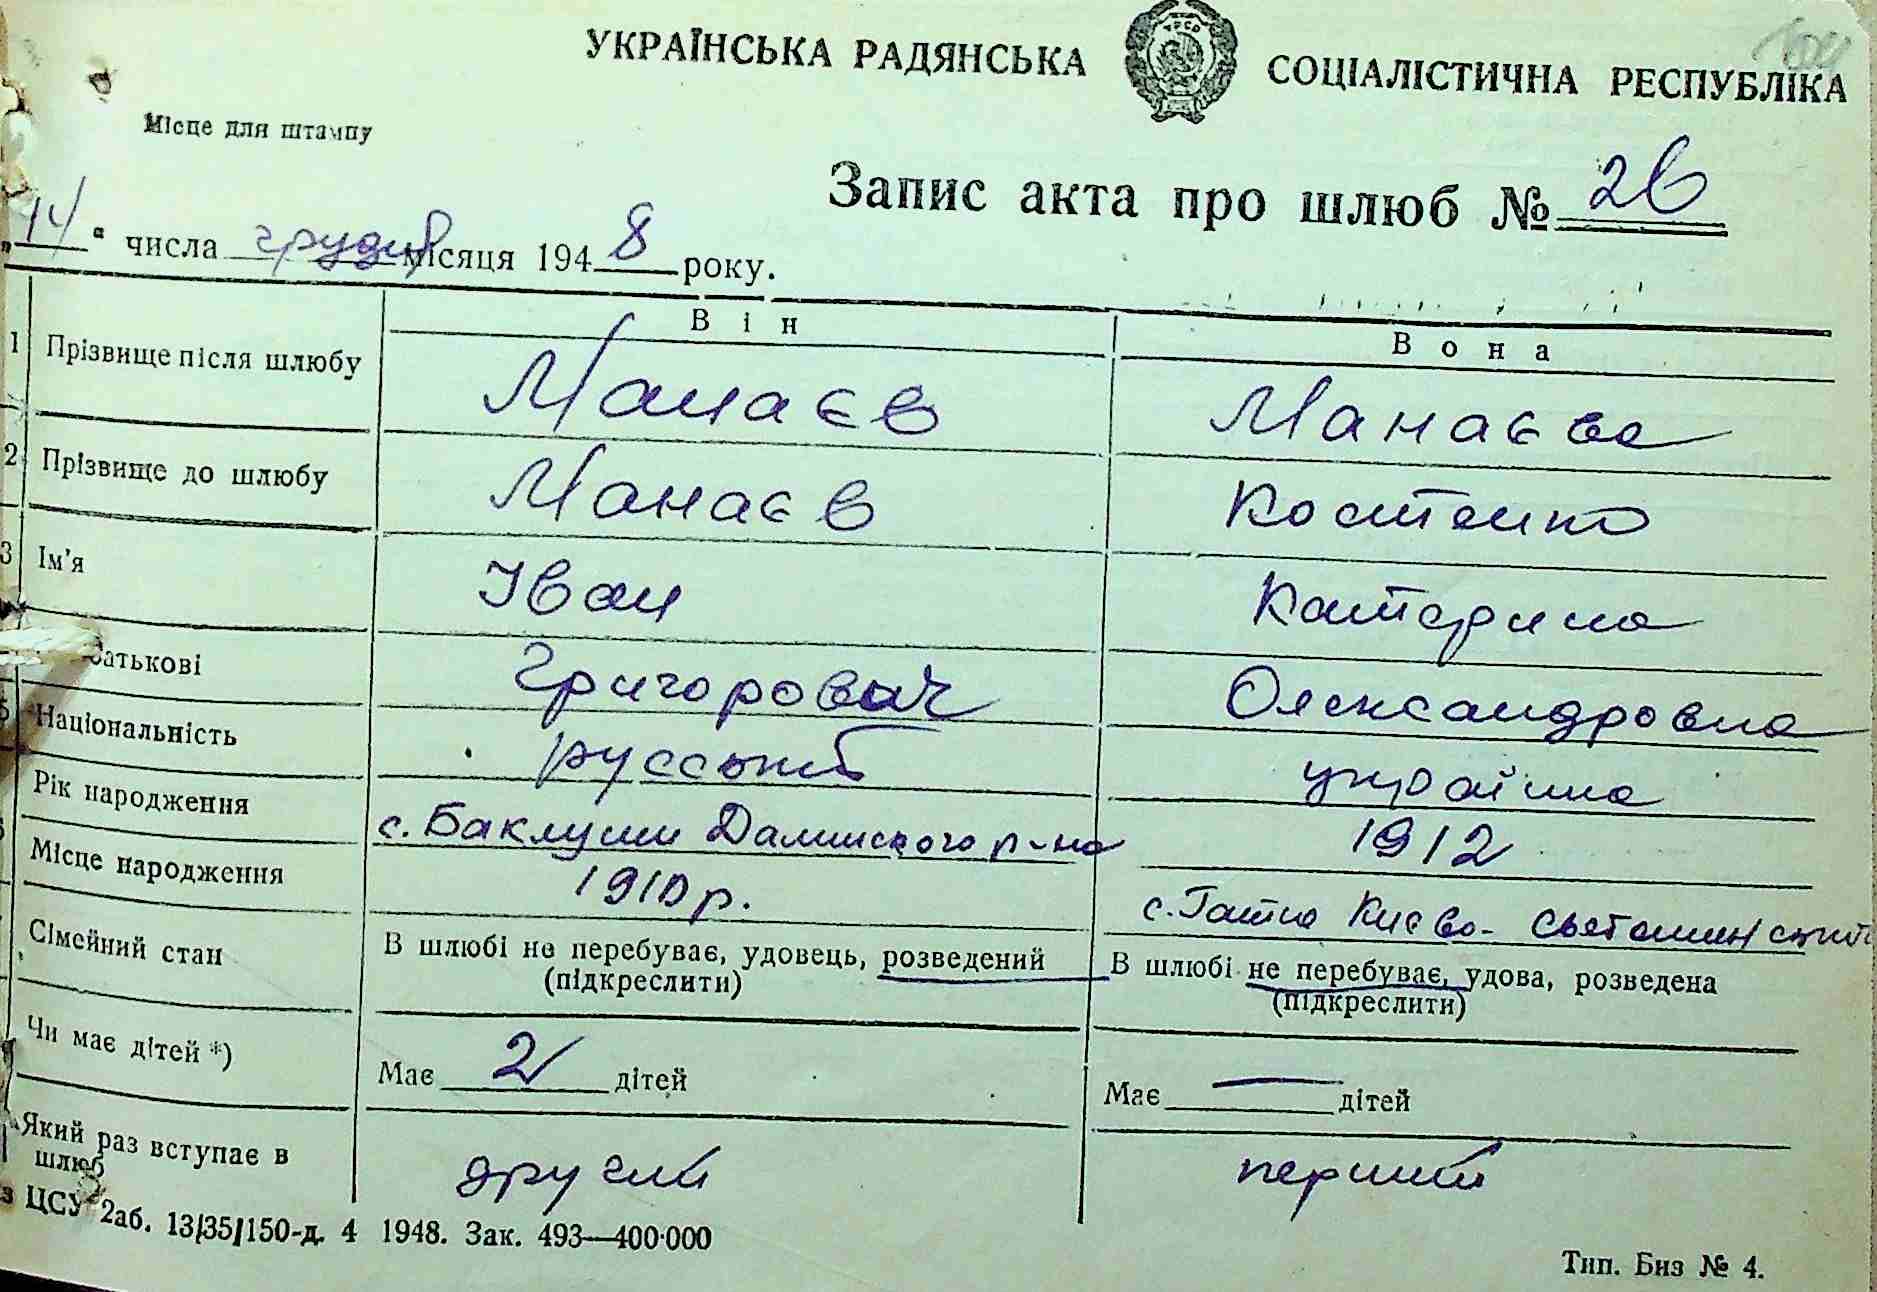 УКРАЇНСЬКА РАДЯНСЬКА СОЦІАЛІСТИЧНА РЕСПУБЛІКА
Місце для штампу
Запис акта про шлюб № 26
„14“ числа грудня місяця 1948 року.
Він Вона
1 Прізвище після шлюбу Манаєв Манаєва
2 Прізвище до шлюбу Манаєв Костенко
3 Ім'я Іван Катерина
батькові Григорович Олександровна
5 Національність русский українка
Рік народження с. Баклуши Даминского р-на 1912
Місце народження 1910 р. с. Гатне Києво-Святошинский
Сімейний стан В шлюбі не перебуває, удовець, розведений В шлюбі не перебуває, удова, розведена
(підкреслити) (підкреслити)
Чи має дітей *) Має 2 дітей Має — дітей
Який раз вступає в шлюб другий перший
з ЦСУ 2аб. 13/35/150-д. 4 1948. Зак. 493—400·000
Тип. Биз № 4.